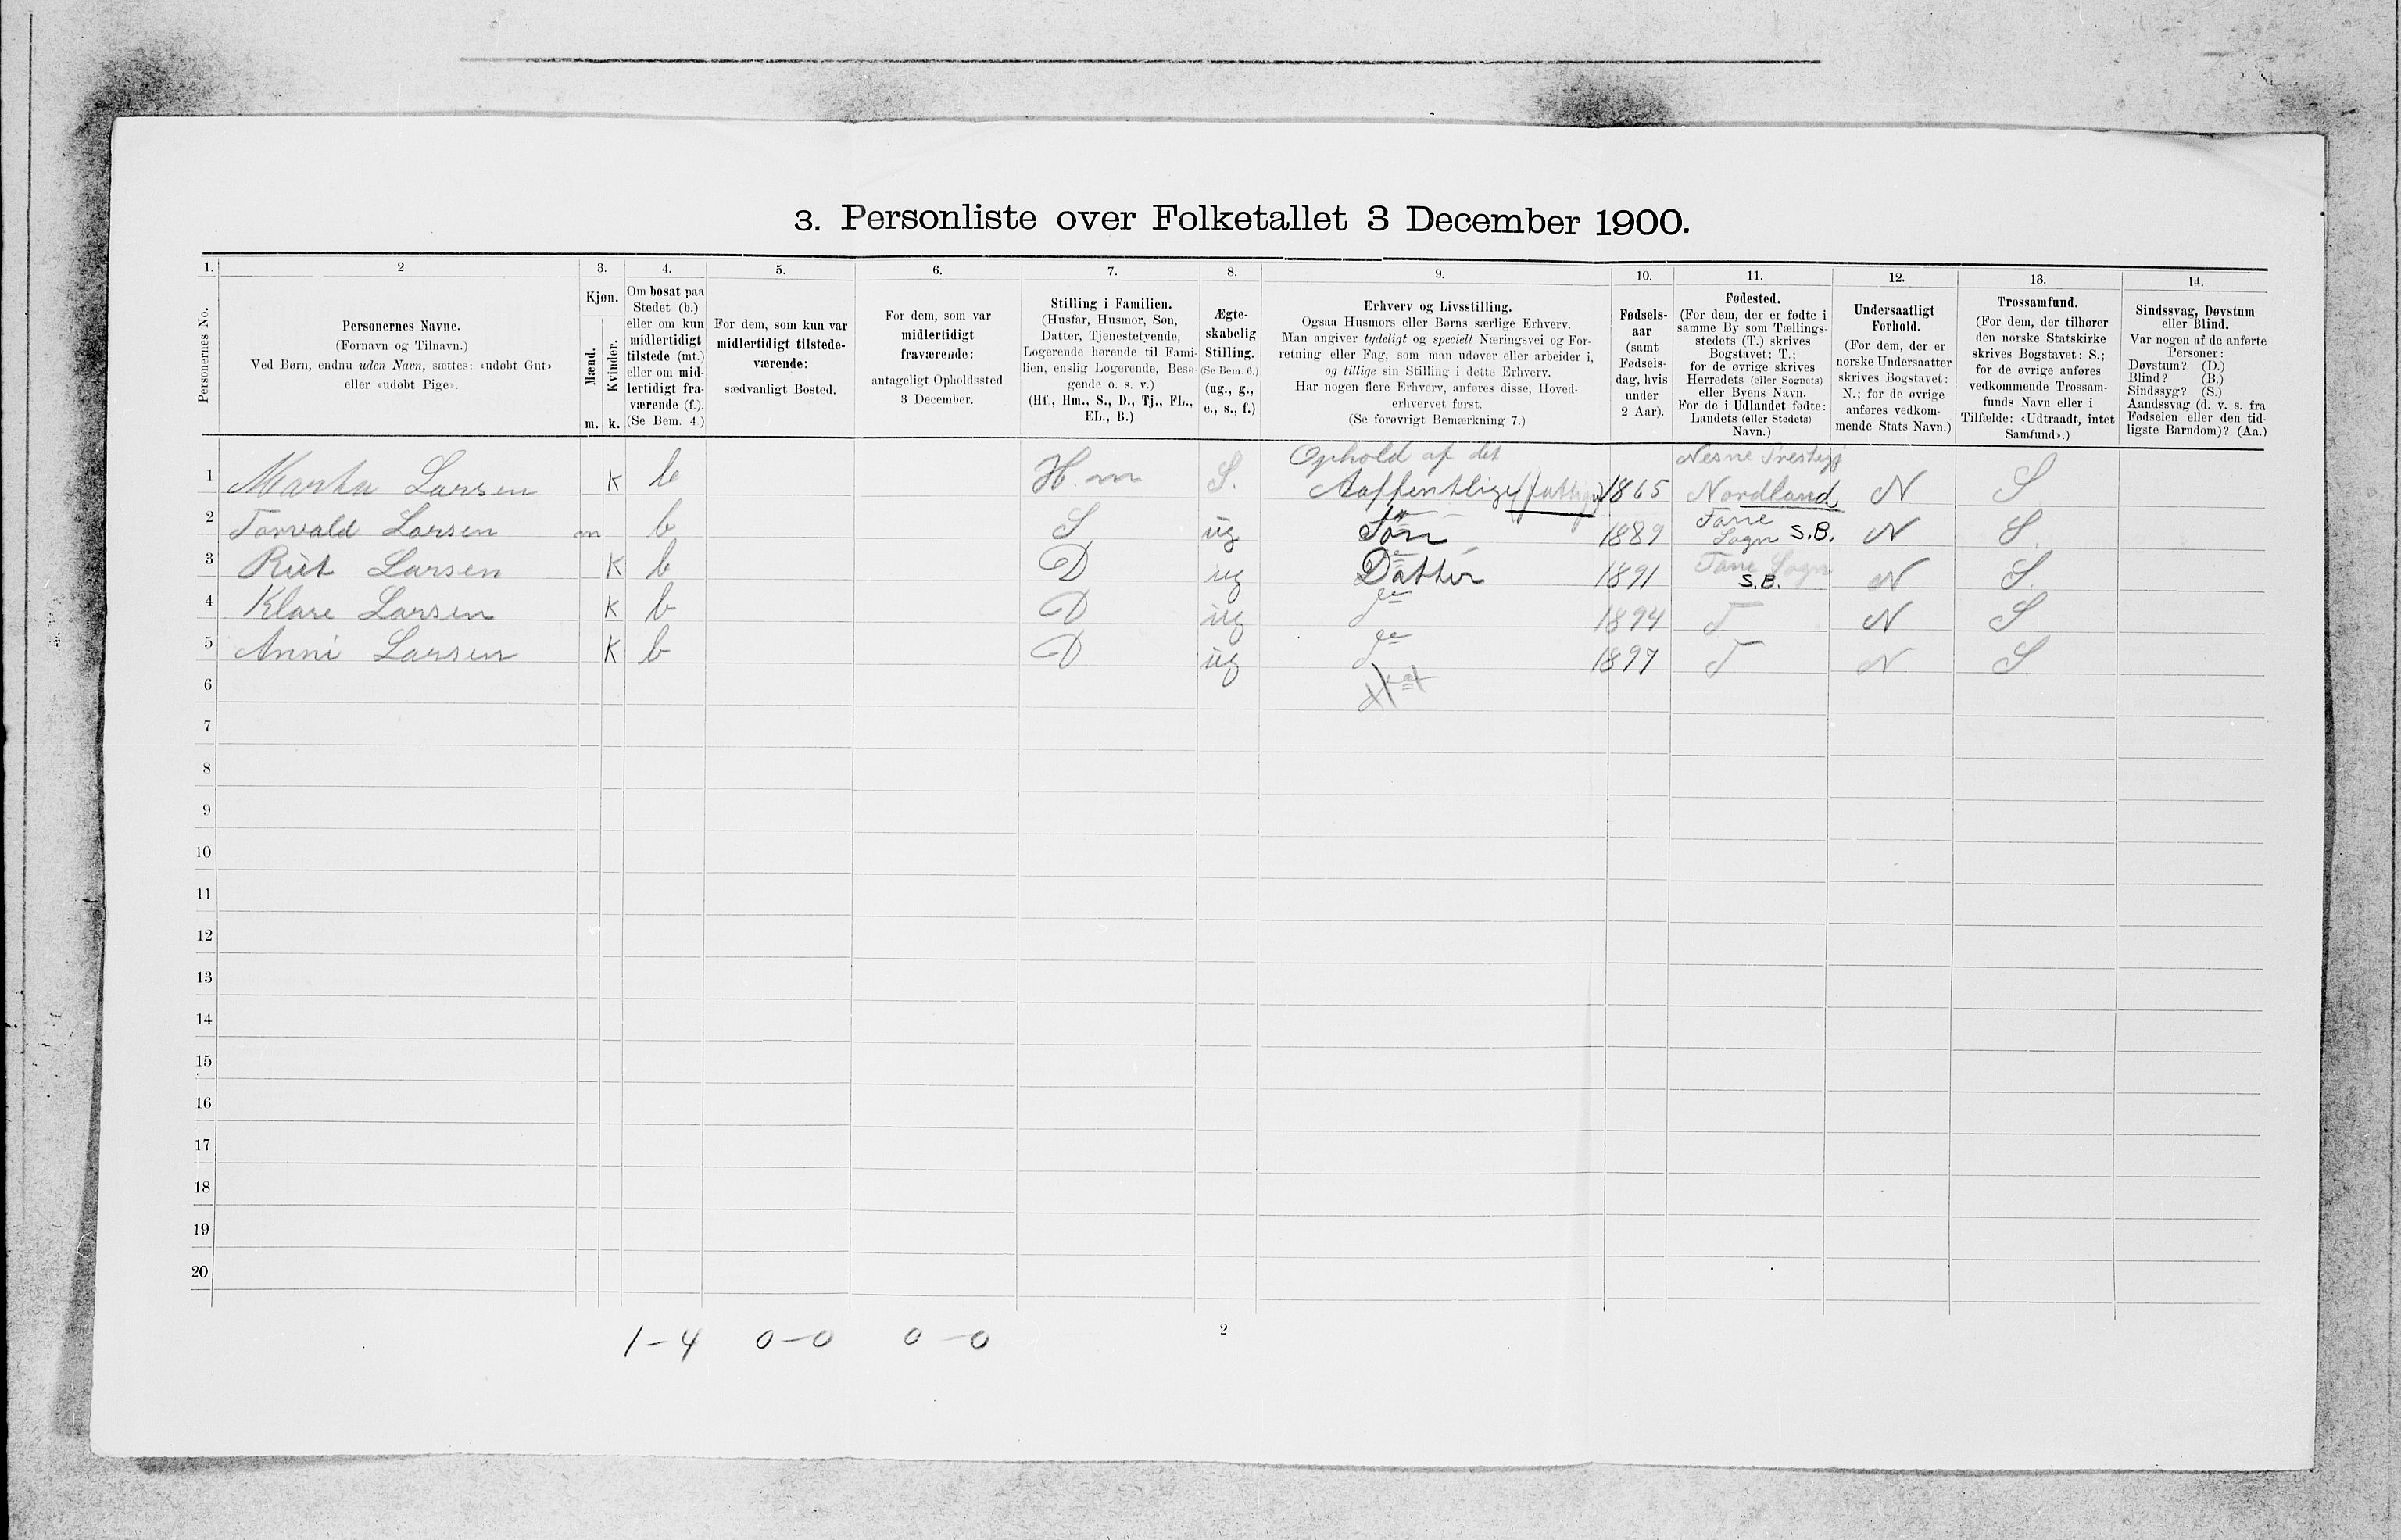 3. Personliste over Folketallet 3 December 1900.
1. 2 3. 4. 5. 6. 7. 8. 9. 10. 11. 12. 13. 14.
Personernes No.
Personernes Navne.
(Fornavn og Tilnavn.)
Ved Børn, endnu uden Navn, sættes: «udøbt Gut»
eller «udøbt Pige».
Kjøn.
Mænd.
Kvinder.
m. k.
Om bosat paa
Stedet (b.)
eller om kun
midlertidigt
tilstede (mt.)
eller om mid-
lertidigt fra-
værende (f.).
(Se Bem. 4.)
For dem, som kun var
midlertidigt tilstede-
værende:
sædvanligt Bosted.
For dem, som var
midlertidigt
fraværende:
antageligt Opholdssted
3 December.
Stilling i Familien.
(Husfar, Husmor, Søn,
Datter, Tjenestetyende,
Logerende hørende til Fami-
lien, enslig Logerende, Besø-
gende o. s. v.)
(Hf., Hm., S., D., Tj., FL.,
EL., B.)
Ægte-
skabelig
Stilling.
(Se Bem. 6.)
(ug., g.,
e., s., f.)
Erhverv og Livsstilling.
Ogsaa Husmors eller Børns særlige Erhverv.
Man angiver tydeligt og specielt Næringsvei og For-
retning eller Fag, som man udøver eller arbeider i,
og tillige sin Stilling i dette Erhverv.
Har nogen flere Erhverv, anføres disse, Hoved-
erhvervet først.
(Se forøvrigt Bemærkning 7.)
Fødsels-
aar
(samt
Fødsels-
dag, hvis
under
2 Aar).
Fødested.
(For dem, der er fødte i
samme By som Tællings-
stedets (T.) skrives
Bogstavet: T.;
for de øvrige skrives
Herredets (eller Sognets)
eller Byens Navn.
For de i Udlandet fødte:
Landets (eller Stedets)
Navn.)
Undersaatligt
Forhold.
(For dem, der er
norske Undersaatter
skrives Bogstavet:
N.; for de øvrige
anføres vedkom-
mende Stats Navn.)
Trossamfund.
(For dem, der tilhører
den norske Statskirke
skrives Bogstavet: S.;
for de øvrige anføres
vedkommende Trossam-
funds Navn eller i
Tilfælde: «Udtraadt, intet
Samfund».)
Sindssvag, Døvstum
eller Blind.
Var nogen af de anførte
Personer:
Døvstum? (D.)
Blind? (B.)
Sindssyg? (S.)
Aandssvag (d. v. s. fra
Fødselen eller den tid-
ligste Barndom)? (Aa.)
Ophold af det Nesne Prestegj
1 Martha Larsen K b H.m S. Aaffentlige 1865 Nordland N S
2 Torvald Larsen m b S ug Søn 1889 Fane Sogn S.B. N S.
3 Rut Larsen K b D ug Datter 1891 Fane Sogn S.B. N S.
4 Klare Larsen K b D ug 1894 T N S
5 Anni Larsen K b D ug 1897 T N S.
6
7
8
9
10
11
12
13
14
15
16
17
18
19
20
1-4 0-0 0-0
2